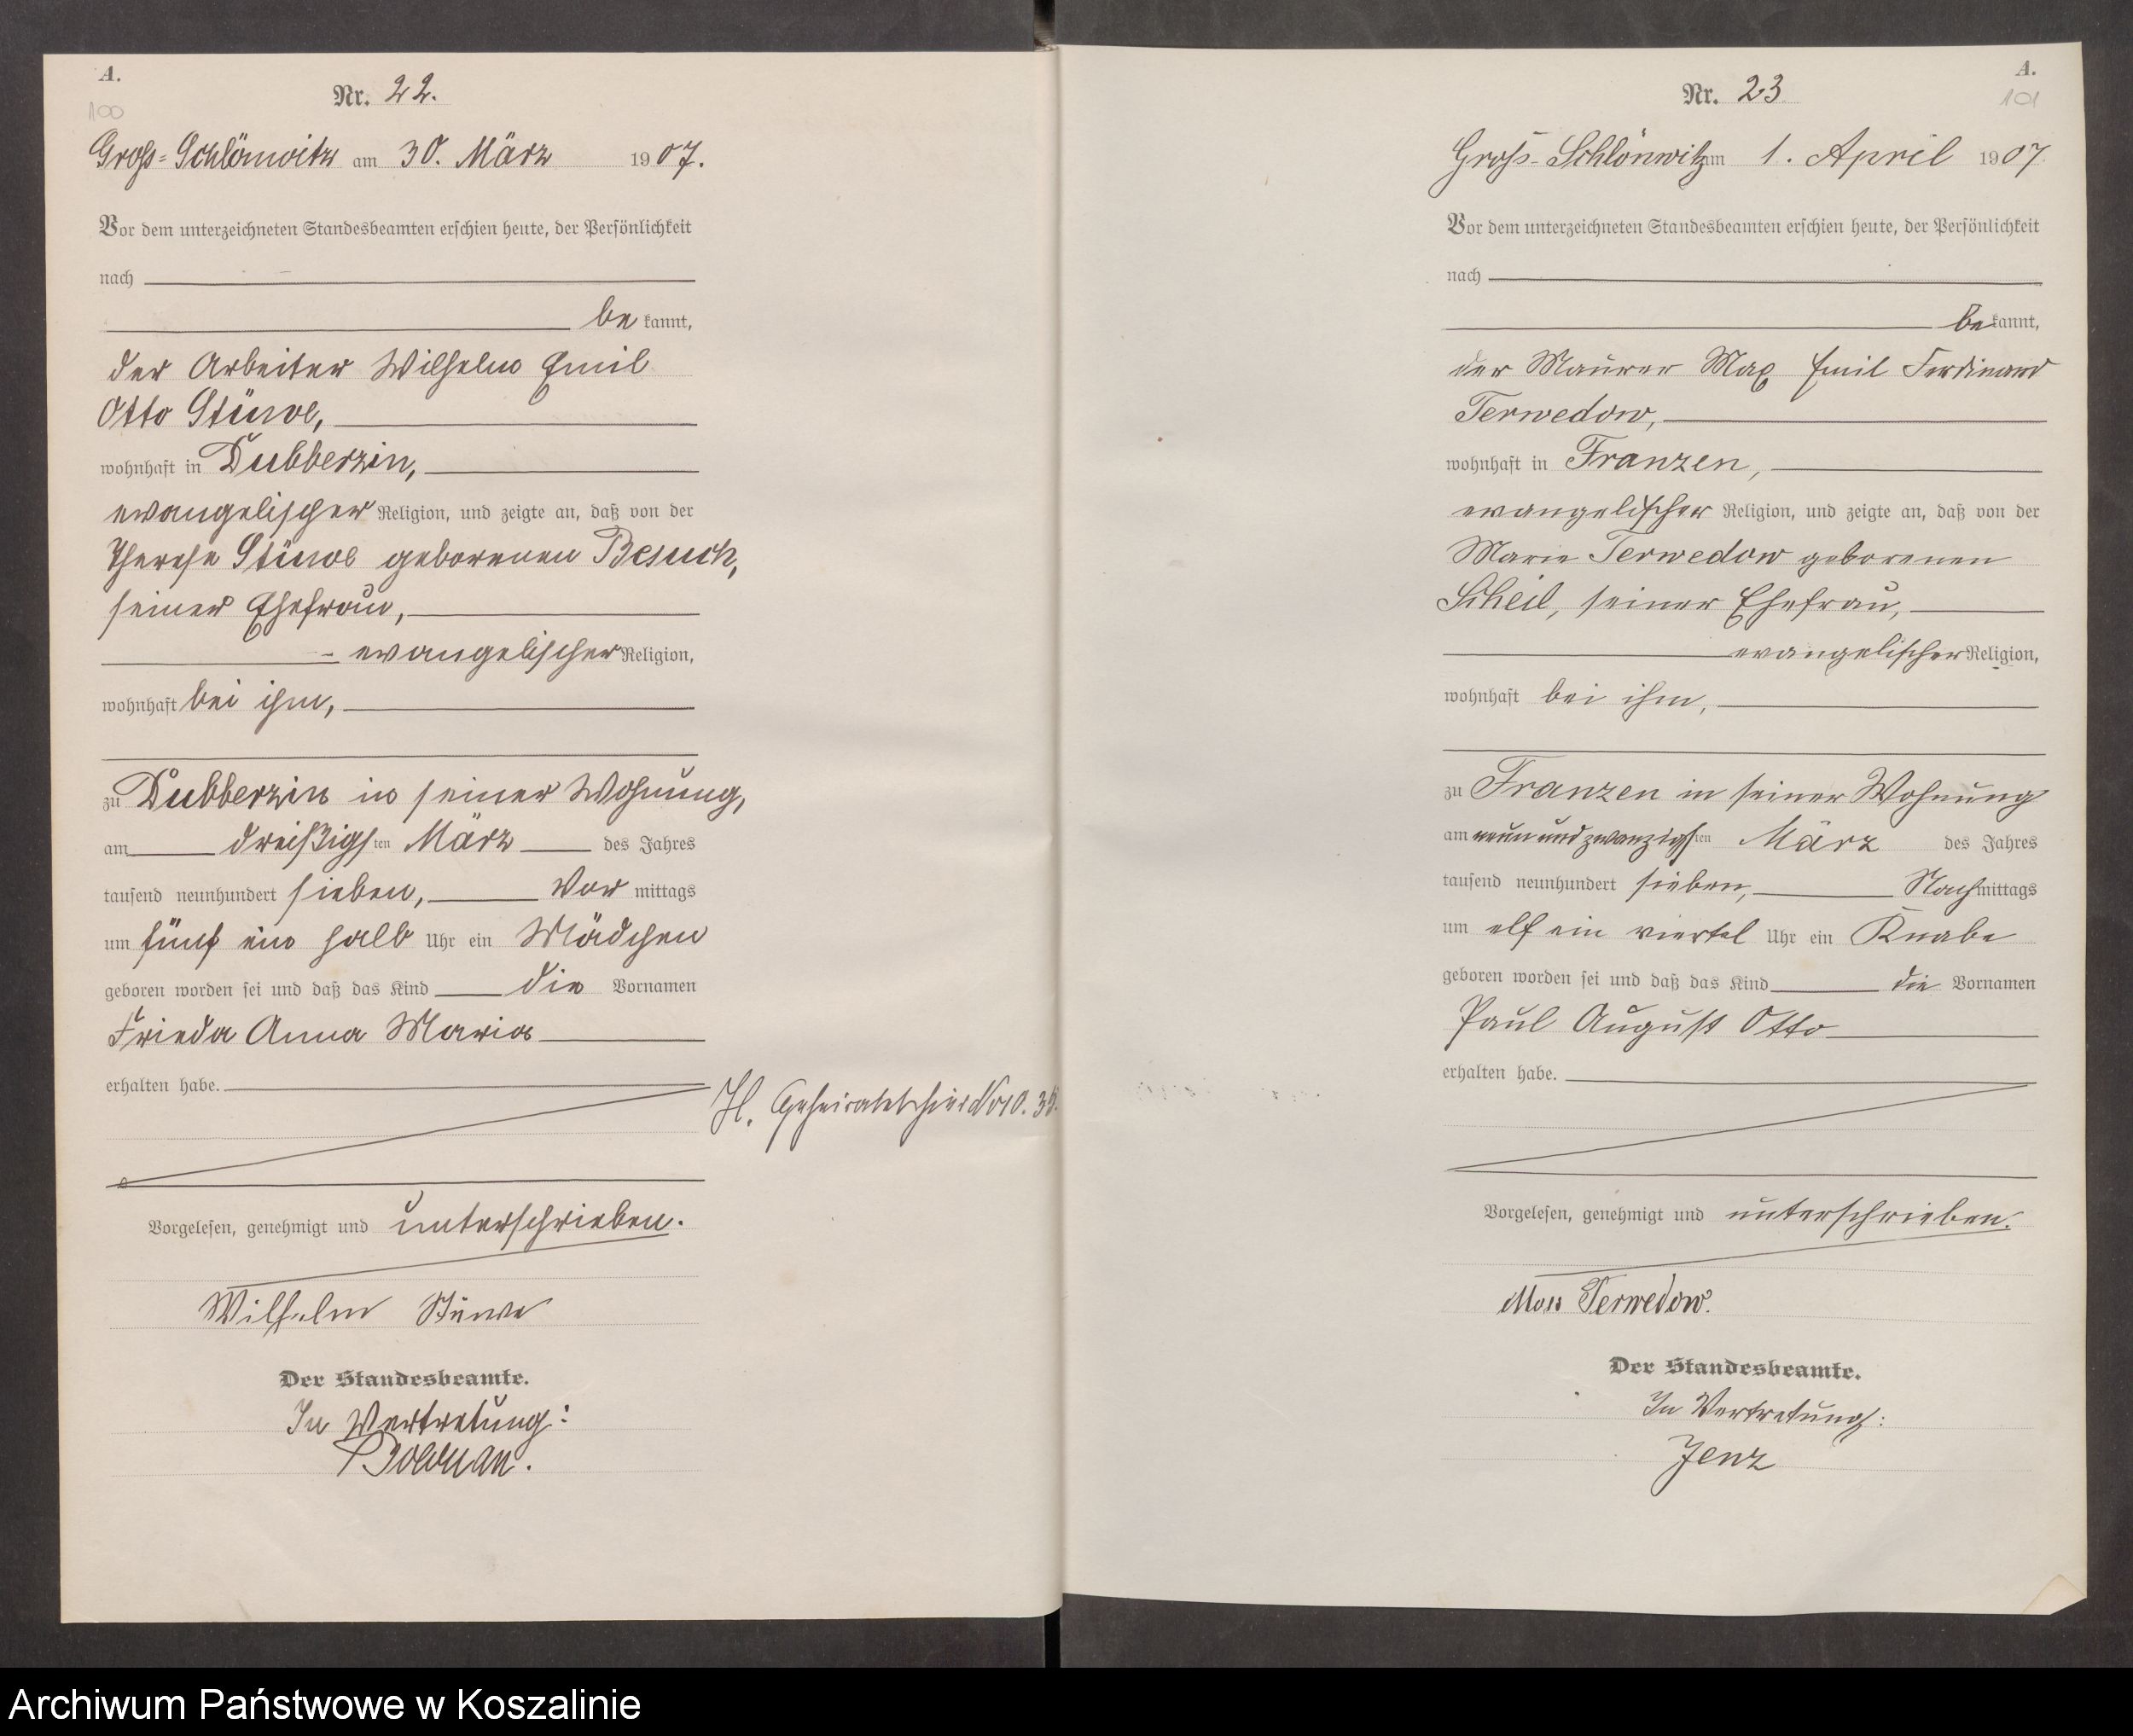 A.
100
Nr. 22.
Groß-Schlönwitz am 30. März 1907.
Vor dem unterzeichneten Standesbeamten erschien heute, der Persönlichkeit
nach
be kannt,
der Arbeiter Wilhelm Emil
Otto Stüwe,
wohnhaft in Dubberzin,
evangelischer Religion, und zeigte an, daß von der
Therese Stüwe geborenen Besuch,
seiner Ehefrau,
evangelischer Religion,
wohnhaft bei ihm,
zu Dubberzin in seiner Wohnung,
am dreißigsten März des Jahres
tausend neunhundert sieben, Vor mittags
um fünf ein halb Uhr ein Mädchen
geboren worden sei und daß das Kind die Vornamen
Frieda Anna Maria
erhalten habe.
H. Geheiratet hier No 10.
Vorgelesen, genehmigt und unterschrieben.
Wilhelm Stüwe
Der Standesbeamte.
In Vertretung:
A.
101
Nr. 23
Groß-Schlönwitz am 1. April 1907
Vor dem unterzeichneten Standesbeamten erschien heute, der Persönlichkeit
nach
be kannt,
der Maurer Max Emil Ferdinand
Terwedow,
wohnhaft in Franzen,
evangelischer Religion, und zeigte an, daß von der
Marie Terwedow geborenen
Scheil, seiner Ehefrau,
evangelischer Religion,
wohnhaft bei ihm,
zu Franzen in seiner Wohnung
am neun und zwanzigsten März des Jahres
tausend neunhundert sieben, Nachmittags
um elf ein viertel Uhr ein Knabe
geboren worden sei und daß das Kind die Vornamen
Paul August Otto
erhalten habe.
Vorgelesen, genehmigt und unterschrieben.
Max Terwedow.
Der Standesbeamte.
In Vertretung:
Jenz
Archiwum Państwowe w Koszalinie